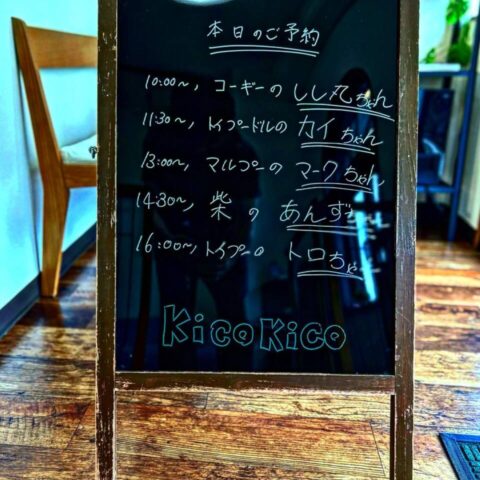 本日のご予約
10:00～, コーギーの しし丸ちゃん
11:30～, トイプードルの カイちゃん
13:00～, マルプーの マークちゃん
14:30～, 柴 の あんずちゃん
16:00～, トイプーの トロちゃん
KicoKico